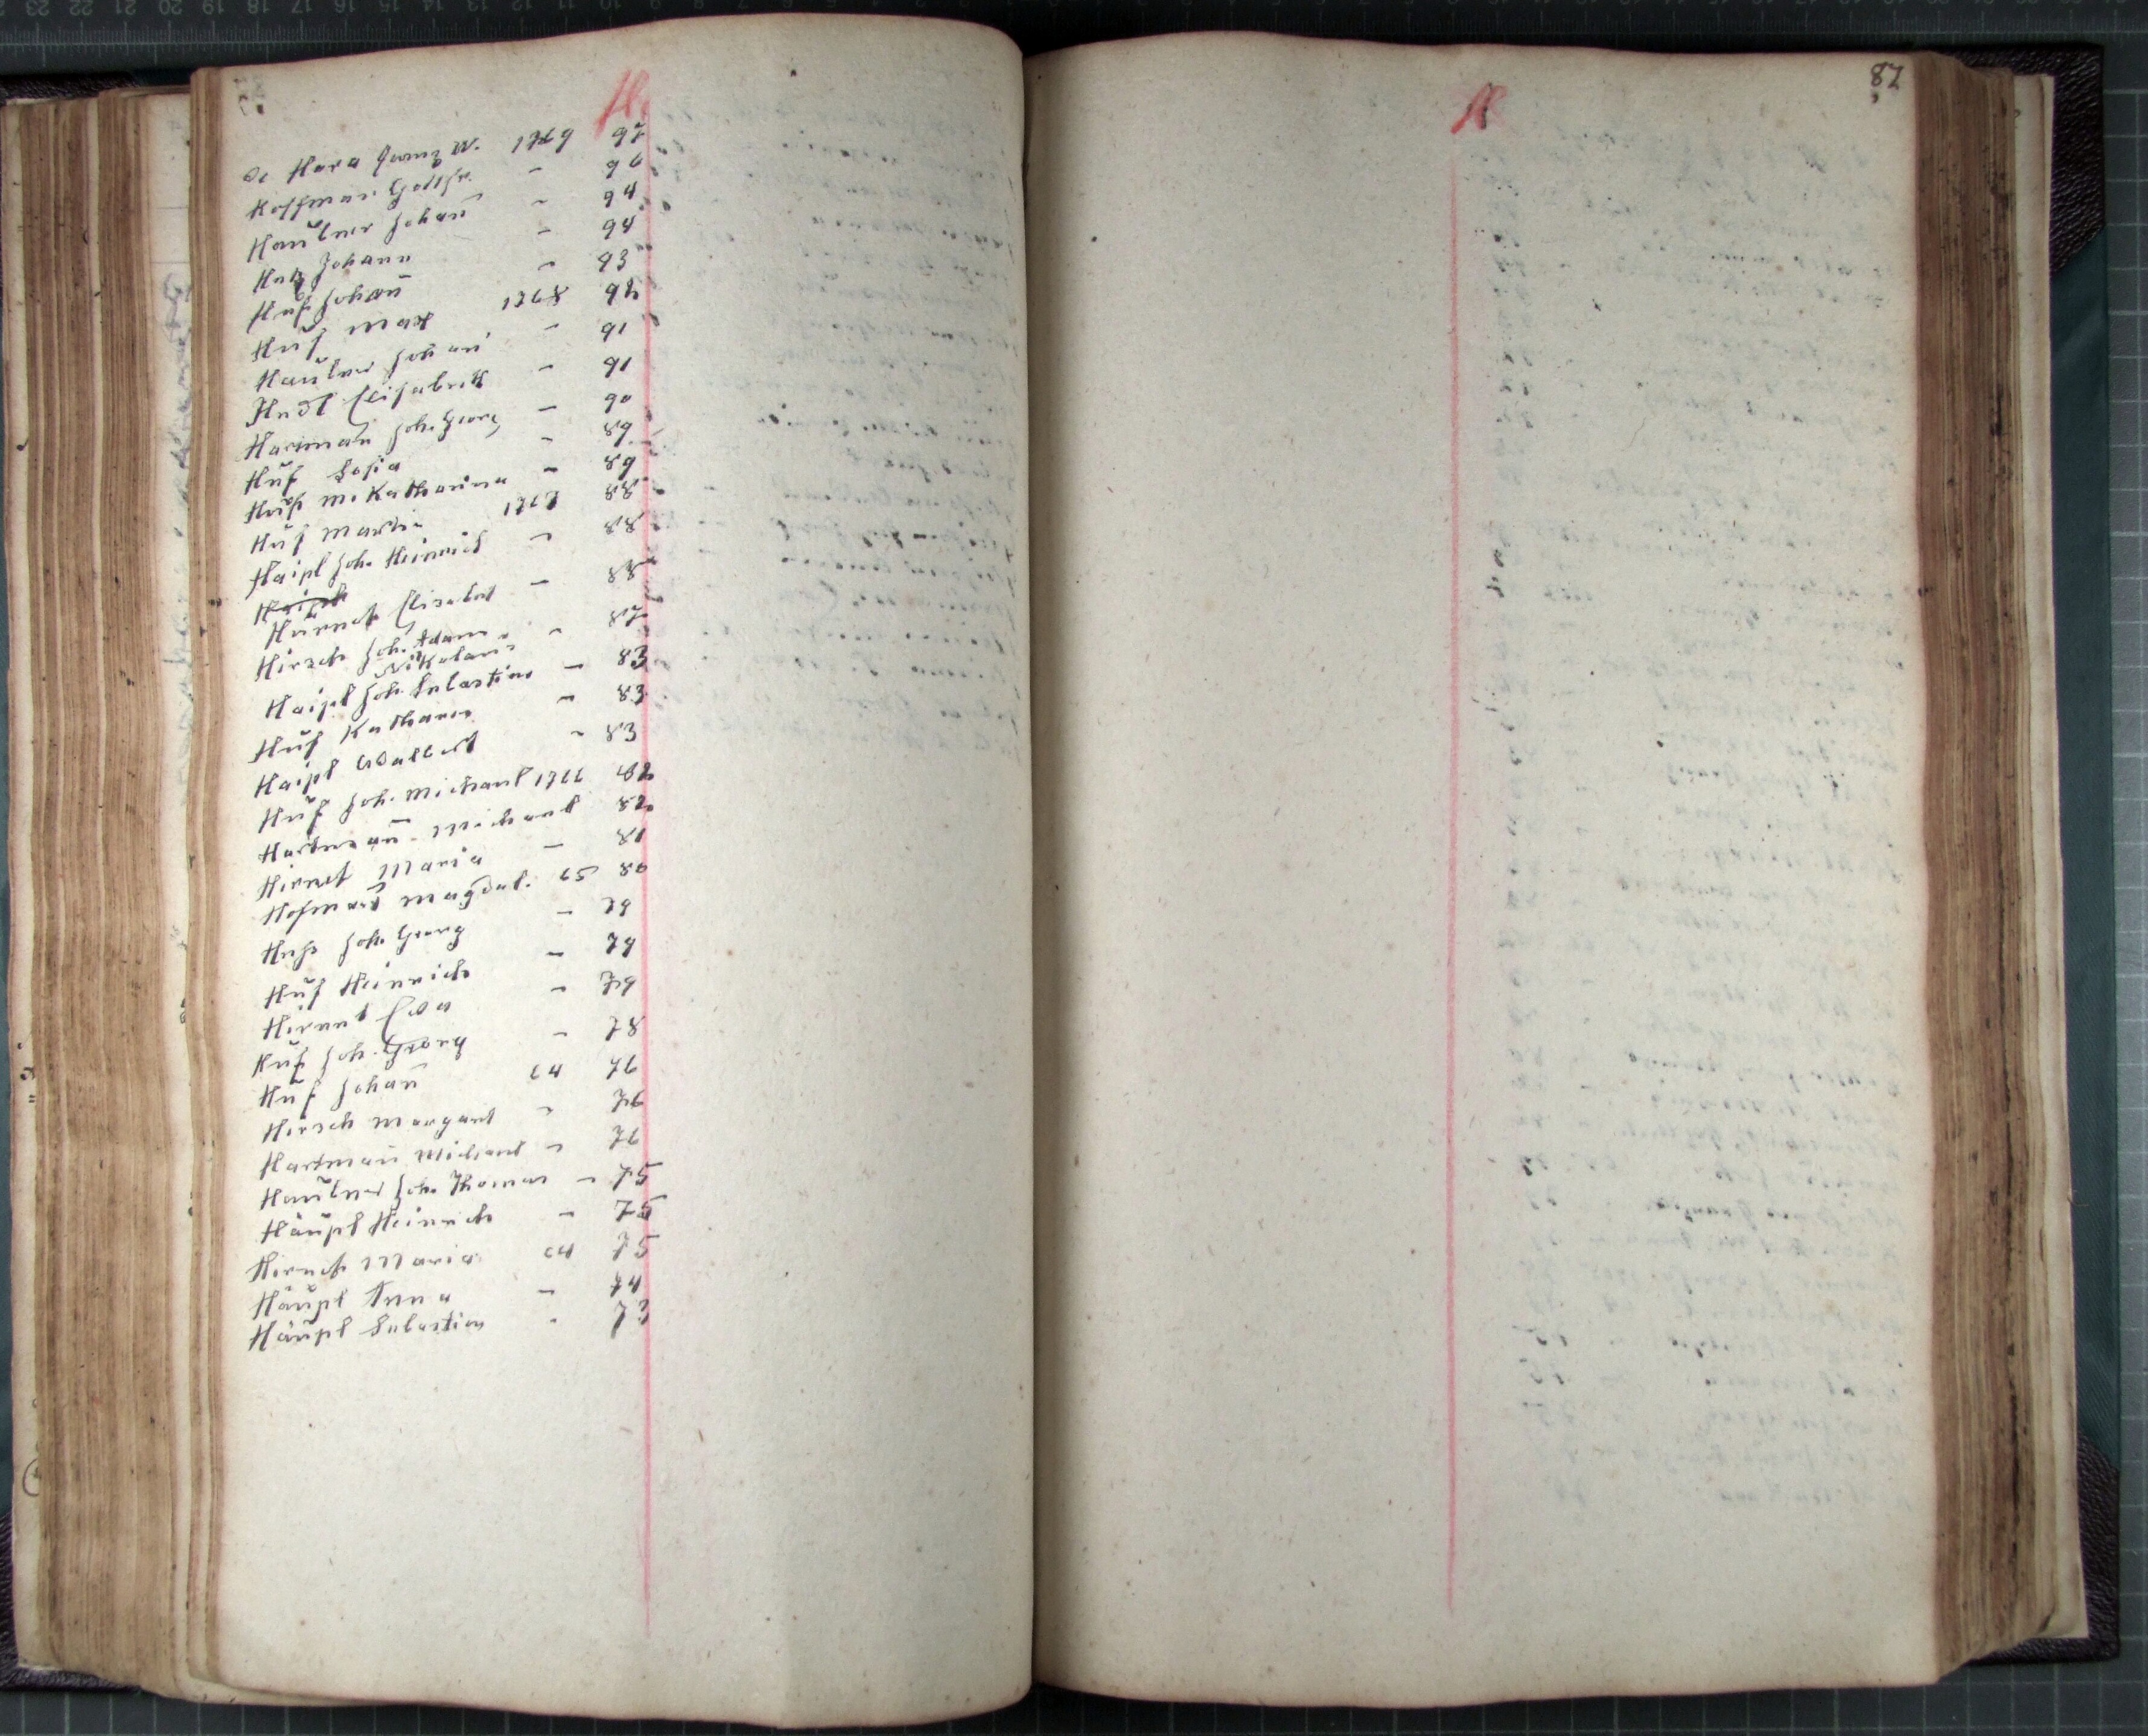 H.
de Hara Georg W. 1769 97
Hoffman Gottfr. - 96
Haubner Johan̄ - 94
Huß Johann - 94
Huf Johan̄ - 93
Huf Max 1768 92
Haubner Johan̄ - 91
Hudl Elisabeth - 91
Hartman̄ Joh. Georg - 90
Huf Sofia - 89
Huf M. Katharina - 89
Huf Martin 1767 88
Haipl Joh. Heinrich - 88
Haipl
Hirnet Elisabet - 88
Hirsch Joh. Adam - 87
Nikolaus
Haipl Joh. Sebastian - 83
Huf Katharina - 83
Haipl Walbert - 83
Huf Joh. Michael 1766 82
Hartman̄ Michael 82
Hirnet Maria - 81
Hofman̄ Magdal. 65 80
Huße Joh. Georg - 79
Huf Heinrich - 79
Hirnet Eva - 79
Huf Joh. Georg - 78
Huf Johan̄ 64 76
Hirsch Margaret - 76
Hartman̄ Michael - 76
Haubner Joh. Thomas - 75
Häupl Heinrich - 75
Hirnet Maria 64 75
Häupl Anna - 74
Häupl Sebastian - 73
H
87